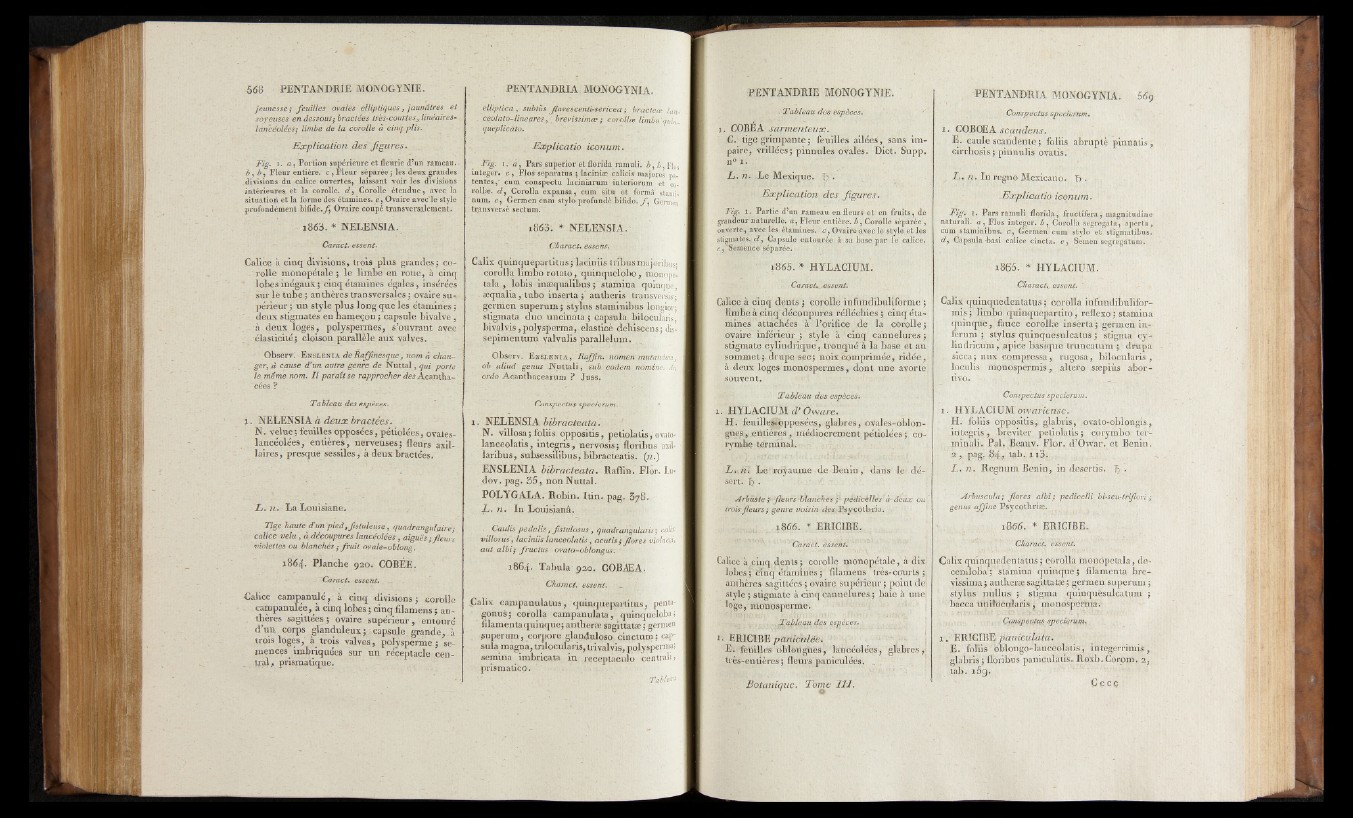 568 PENTANDRIE MONOGYNIE.
jeunesse; feuilles ovales elliptiques, jaunâtres et
soyeuses en dessous; bractées très-courtes, linéaires-
lancéolées; limbe de la corolle à cinq plis.
Explication des figures.
Fig. 1. a, Portion supérieure et fleurie d'un rameau.
b, b, Fleur entière. c, Fleur séparée; les deux grandes
divisions du calice ouvertes, laissant voir les divisions
intérieures et la corolle. d, Corolle étendue, avec la
situation et la forme des étamines. e, Ovaire avec le style
profondément bifide. f, Ovaire coupé transversalement.
1863. * NELENSIA.
Caract. essent.
Calice à cinq divisions, trois plus grandes; co-
rolle monopétale; le limbe en roue, à cinq
lobes inégaux; cinq étamines égales, insérées
sur le tube; anthères transversales; ovaire su-
périeur; un style plus long que les étamines;
deux stigmates en hameçon; capsule bivalve,
à deux loges, polyspermes, s'ouvrant avec
élasticité; cloison parallèle aux valves.
Observ. ENSLENIA de Raffinesque, nom à chan-
ger, à cause d'un autre genre de Nuttal, qui porte
le même nom. Il paraît se rapprocher des Acantha-
cées?
Tableau des espèces.
1. NELENSIA à deux bractées.
N. velue; feuilles opposées, pétiolées, ovales-
lancéolées, entières, nerveuses; fleurs axil-
laires, presque sessiles, à deux bractées.
L. n. La Louisiane.
Tige haute d'un pied, fistuleuse, quadrangulaire;
calice velu, à découpures lancéolées, aiguës; fleurs
violettes ou blanches; fruit ovale-oblong.
1864. Planche 920. COBÉE.
Caract. essent.
Calice campanulé, à cinq divisions; corolle
campanulée, à cinq lobes; cinq filamens; an-
thères sagittées; ovaire supérieur, entouré
d'un corps glanduleux; capsule grande, à
trois loges, à trois valves, polysperme; se-
mences imbriquées sur un réceptacle cen-
tral, prismatique.
PENTANDRIA MONOGYNIA.
elliptica, subtùs flavescenti-sericea; bracteæ lan-
ceolato-lineares, brevissimæ; corollæ limbo quin-
queplicato.
Explicatio iconum.
Fig. 1. a, Pars superior et florida ramuli. b, b, Flos
integer. c, Flos separatus; laciniæ calicis majores pa-
tentes, cum conspectu laciniarum interiorum et co-
rollæ. d, Corolla expansa, cum situ et formâ stami-
num. e, Germen cum stylo profundè bifido. f, Germen
transversè sectum.
1863. * NELENSIA.
Charact. essent.
Calix quinquepartitus; laciniis tribus majoribus;
corolla limbo rotato, quinquelobo, monope-
tala, lobis inæqualibus; stamina quinque,
æqualia, tubo inserta; antheris transversis;
germen superum; stylus staminibus longior;
stigmata duo uncinata; capsula bilocularis,
bivalvis, polysperma, elasticè dehiscens; dis-
sepimentum valvulis parallelum.
Observ. ENSLENIA, Raffin. nomen mutandum,
ob aliud genus Nuttali, sub eodem nomine.
ordo Acanthacearum? Juss.
Conspectus specierum.
1. NELENSIA bibracteata.
N. villosa; foliis oppositis, petiolatis, ovato-
lanceolatis, integris, nervosis; floribus axil-
laribus, subsessilibus, bibracteatis. (n.)
ENSLENIA bibracteata. Raffin. Flor. Lu-
dov. pag. 35, non Nuttal.
POLYGALA. Robin. Itin. pag. 378.
L. n. In Louisianâ.
Caulis pedalis, fistulosus, quadrangularis; calix
villosus, laciniis lanceolatis, acutis; flores violacei
aut albi; fructus ovato-oblongus.
1864. Tabula 920. COBÆA.
Charact. essent.
Calix campanulatus, quinquepartitus, penta-
gonus; corolla campanulata, quinqueloba;
filamenta quinque; antheræ sagittatæ; germen
superum, corpore glanduloso cinctum; cap-
sula magna, trilocularis, trivalvis, polysperma;
semina imbricata in receptaculo centrali,
prismatico.
Tableau
PENTANDRIE MONOGYNIE.
Tableau des espèces.
1. COBÉA sarmenteux.
C. tige grimpante; feuilles ailées, sans im-
paire, vrillées; pinnules ovales. Dict. Supp.
n° 1.
L. n. Le Mexique. ♄.
Explication des figures.
Fig. 1. Partie d'un rameau en fleurs et en fruits, de
grandeur naturelle. a, Fleur entière. b, Corolle séparée,
ouverte, avec les étamines. c, Ovaire avec le style et les
stigmates. d, Capsule entourée à sa base par le calice.
e, Semence séparée.
1865. * HYLACIUM.
Caract. essent.
Calice à cinq dents; corolle infundibuliforme;
limbe à cinq découpures réfléchies; cinq éta-
mines attachées à l'orifice de la corolle;
ovaire inférieur; style à cinq cannelures;
stigmate cylindrique, tronqué à la base et au
sommet; drupe sec; noix comprimée, ridée,
à deux loges monospermes, dont une avorte
souvent.
Tableau des espèces.
1. HYLACIUM d'Oware.
H. feuilles opposées, glabres, ovales-oblon-
gues, entières, médiocrement pétiolées; co-
rymbe terminal.
L. n. Le royaume de Benin, dans le dé-
sert. ♄.
Arbuste; fleurs blanches; pédicelles à deux ou
trois fleurs; genre voisin des Psycothria.
1866. * ERICIBE.
Caract. essent.
Calice à cinq dents; corolle monopétale, à dix
lobes; cinq étamines; filamens très-courts;
anthères sagittées; ovaire supérieur; point de
style; stigmate à cinq cannelures; baie à une
loge, monosperme.
Tableau des espèces.
1. ERICIBE paniculée.
E. feuilles oblongues, lancéolées, glabres,
très-entières; fleurs paniculées.
Botanique. Tome III.
PENTANDRIA MONOGYNIA. 569
Conspectus specierum.
1. COBŒA scandens.
E. caule scandente; foliis abruptè pinnatis,
cirrhosis; pinnulis ovatis.
L. n. In regno Mexicano. ♄.
Explicatio iconum.
Fig. 1. Pars ramuli florida, fructifera, magnitudine
naturali. a, Flos integer. b, Corolla segregata, aperta,
cum staminibus. c, Germen cum stylo et stigmatibus.
d, Capsula basi calice cincta. e, Semen segregatum.
1865. * HYLACIUM.
Charact. essent.
Calix quinquedentatus; corolla infundibulifor-
mis; limbo quinquepartito, reflexo; stamina
quinque, fauce corollæ inserta; germen in-
ferum; stylus quinquesulcatus; stigma cy-
lindricum, apice baseque truncatum; drupa
sicca; nux compressa, rugosa, bilocularis,
loculis monospermis, altero sæpiùs abor-
tivo.
Conspectus specierum.
1. HYLACIUM owariense.
H. foliis oppositis, glabris, ovato-oblongis,
integris, breviter petiolatis; corymbo ter-
minali. Pal. Beauv. Flor. d'Owar. et Benin.
2, pag. 84, tab. 113.
L. n. Regnum Benin, in desertis. ♄.
Arbuscula; flores albi; pedicelli bi-seu-triflori;
genus affine Psycothriæ.
1866. * ERICIBE.
Charact. essent.
Calix quinquedentatus; corolla monopetala, de-
cemloba; stamina quinque; filamenta bre-
vissima; antheræ sagittatæ; germen superum;
stylus nullus; stigma quinquesulcatum;
bacca unilocularis, monosperma.
Conspectus specierum.
1. ERICIBE paniculata.
E. foliis oblongo-lanceolatis, integerrimis,
glabris; floribus paniculatis. Roxb. Corom. 2,
tab. 159.
Cccc